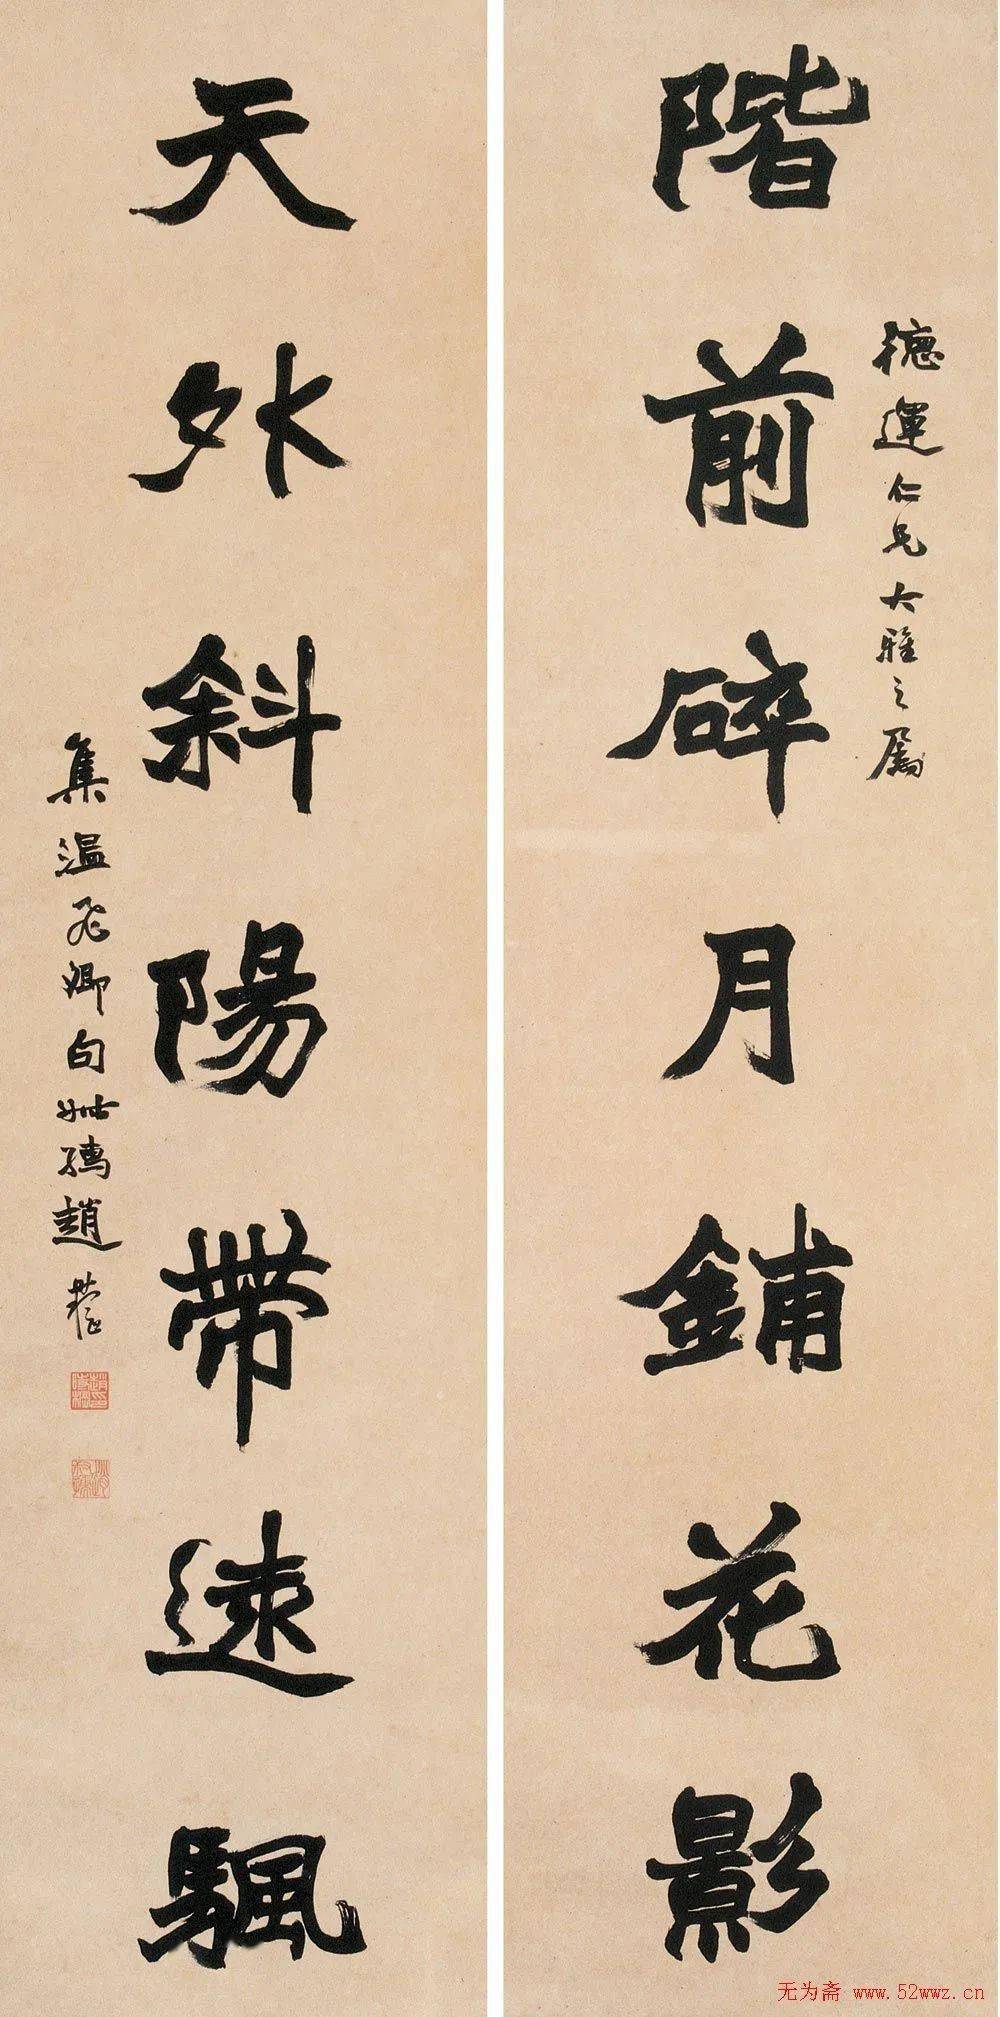 階前碎月鋪花影
德運仁兄大雅之屬
天外斜陽帶遠颿
集温飛卿句叔孺趙時棡
无为斋 www.52wwz.cn